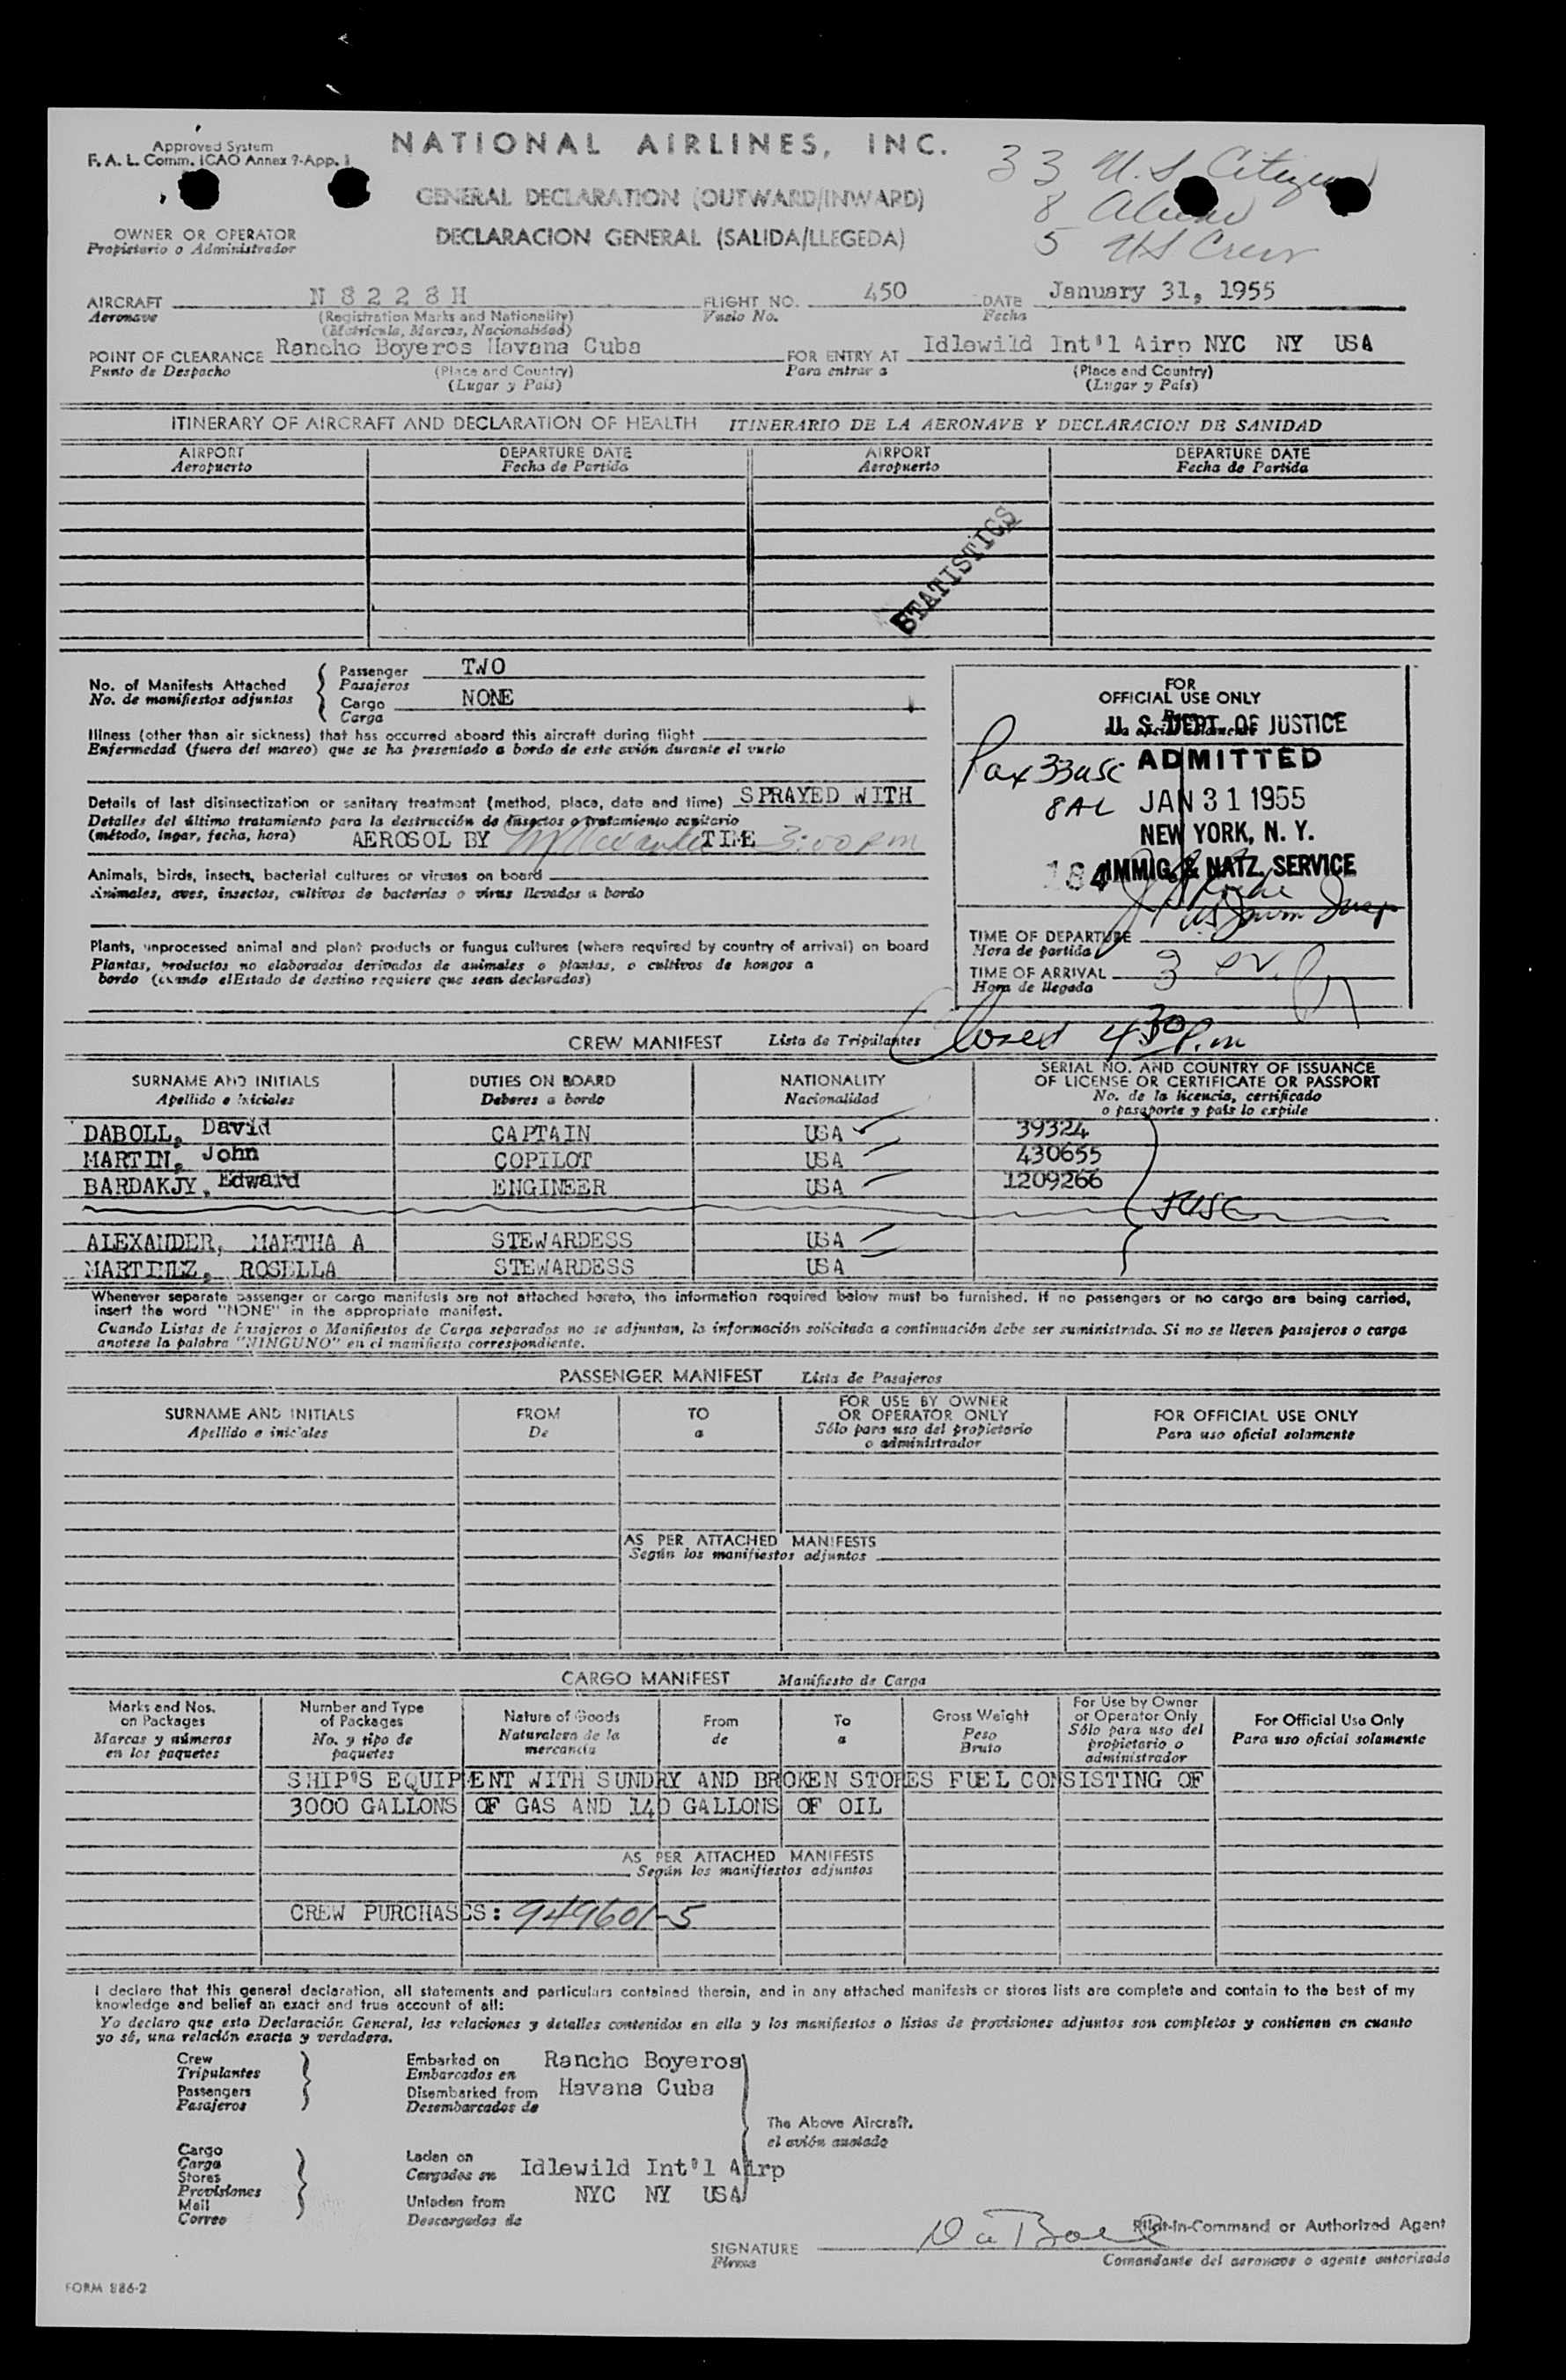 Approved System
F. A. L. Comm. ICAO Annex 9-App. 1
NATIONAL AIRLINES, INC.
33 U.S Citizens
8 Aliens
5 US Crew
GENERAL DECLARATION (OUTWARD/INWARD)
DECLARACION GENERAL (SALIDA/LLEGEDA)
OWNER OR OPERATOR
Propietario o Administrador
AIRCRAFT N 8 2 2 8 H FLIGHT NO. 450 DATE January 31, 1955
Aeronave (Registration Marks and Nationality) Vuelo No. Fecha
(Matricula, Marcas, Nacionalidad)
POINT OF CLEARANCE Rancho Boyeros Havana Cuba FOR ENTRY AT Idlewild Int'l Airp NYC NY USA
Punto de Despacho (Place and Country) Para entrar a (Place and Country)
(Lugar y País) (Lugar y País)
ITINERARY OF AIRCRAFT AND DECLARATION OF HEALTH ITINERARIO DE LA AERONAVE Y DECLARACION DE SANIDAD
AIRPORT DEPARTURE DATE AIRPORT DEPARTURE DATE
Aeropuerto Fecha de Partida Aeropuerto Fecha de Partida
STATISTICS
No. of Manifests Attached
No. de manifiestos adjuntos
Passenger TWO
Pasajeros
Cargo NONE
Carga
Illness (other than air sickness) that has occurred aboard this aircraft during flight
Enfermedad (fuera del mareo) que se ha presentado a bordo de este avión durante el vuelo
Details of last disinsectization or sanitary treatment (method, place, date and time) SPRAYED WITH
Detalles del último tratamiento para la destrucción de insectos o tratamiento sanitario
(método, lugar, fecha, hora) AEROSOL BY M Alexander TIME 3:00 pm
Animals, birds, insects, bacterial cultures or viruses on board
Animales, aves, insectos, cultivos de bacterias o virus llevados a bordo
Plants, unprocessed animal and plant products or fungus cultures (where required by country of arrival) on board
Plantas, productos no elaborados derivados de animales o plantas, o cultivos de hongos a
bordo (cuando elEstado de destino requiere que sean declarados)
FOR
OFFICIAL USE ONLY
U. S. DEPT. OF JUSTICE
Pax 33 USC ADMITTED
8 AL JAN 31 1955
NEW YORK, N. Y.
184 IMMIG. & NATZ. SERVICE
TIME OF DEPARTURE
Hora de partida
TIME OF ARRIVAL 3
Hora de llegada
Closed 4 30 P.m
CREW MANIFEST Lista de Tripulantes
SURNAME AND INITIALS DUTIES ON BOARD NATIONALITY SERIAL NO. AND COUNTRY OF ISSUANCE
OF LICENSE OR CERTIFICATE OR PASSPORT
Apellido e iniciales Deberes a bordo Nacionalidad No. de la licencia, certificado
o pasaporte y país lo expide
DABOLL, David CAPTAIN USA 39324
MARTIN, John COPILOT USA 430655
BARDAKJY, Edward ENGINEER USA 1209266
5 USC
ALEXANDER, MARTHA A STEWARDESS USA
MARTINEZ, ROSELLA STEWARDESS USA
Whenever separate passenger or cargo manifests are not attached hereto, the information required below must be furnished. If no passengers or no cargo are being carried,
insert the word "NONE" in the appropriate manifest.
Cuando Listas de Pasajeros o Manifiestos de Carga separados no se adjuntan, la información solicitada a continuación debe ser suministrada. Si no se lleven pasajeros o carga
anotese la palabra "NINGUNO" en el manifiesto correspondiente.
PASSENGER MANIFEST Lista de Pasajeros
SURNAME AND INITIALS FROM TO FOR USE BY OWNER OR OPERATOR ONLY FOR OFFICIAL USE ONLY
Apellido e iniciales De a Sólo para uso del propietario o administrador Para uso oficial solamente
AS PER ATTACHED MANIFESTS
Según los manifiestos adjuntos
CARGO MANIFEST Manifiesto de Carga
Marks and Nos. on Packages Number and Type of Packages Nature of Goods From To Gross Weight For Use by Owner or Operator Only For Official Use Only
Marcas y números en los paquetes No. y tipo de paquetes Naturaleza de la mercancía de a Peso Bruto Sólo para uso del propietario o administrador Para uso oficial solamente
SHIP'S EQUIPMENT WITH SUNDRY AND BROKEN STORES FUEL CONSISTING OF
3000 GALLONS OF GAS AND 140 GALLONS OF OIL
AS PER ATTACHED MANIFESTS
Según los manifiestos adjuntos
CREW PURCHASES: 949601-5
I declare that this general declaration, all statements and particulars contained therein, and in any attached manifests or stores lists are complete and contain to the best of my
knowledge and belief an exact and true account of all:
Yo declaro que esta Declaración General, las relaciones y detalles contenidos en ella y los manifiestos o listas de provisiones adjuntos son completos y contienen en cuanto
yo sé, una relación exacta y verdadera.
Crew Embarked on Rancho Boyeros
Tripulantes Embarcados en
Passengers Disembarked from Havana Cuba
Pasajeros Desembarcados de
The Above Aircraft.
el avión anotado
Cargo
Carga Laden on
Stores Cargados en Idlewild Int'l Airp
Provisiones NYC NY USA
Mail Unladen from
Correo Descargados de
Pilot-in-Command or Authorized Agent
SIGNATURE DaBoll
Firma Comandante del aeronave o agente autorizado
FORM 886-2